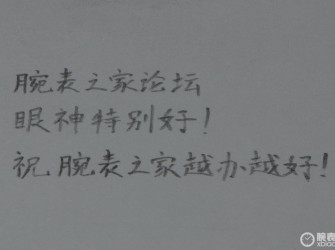 腕表之家论坛
眼神特别好！
祝腕表之家越办越好！